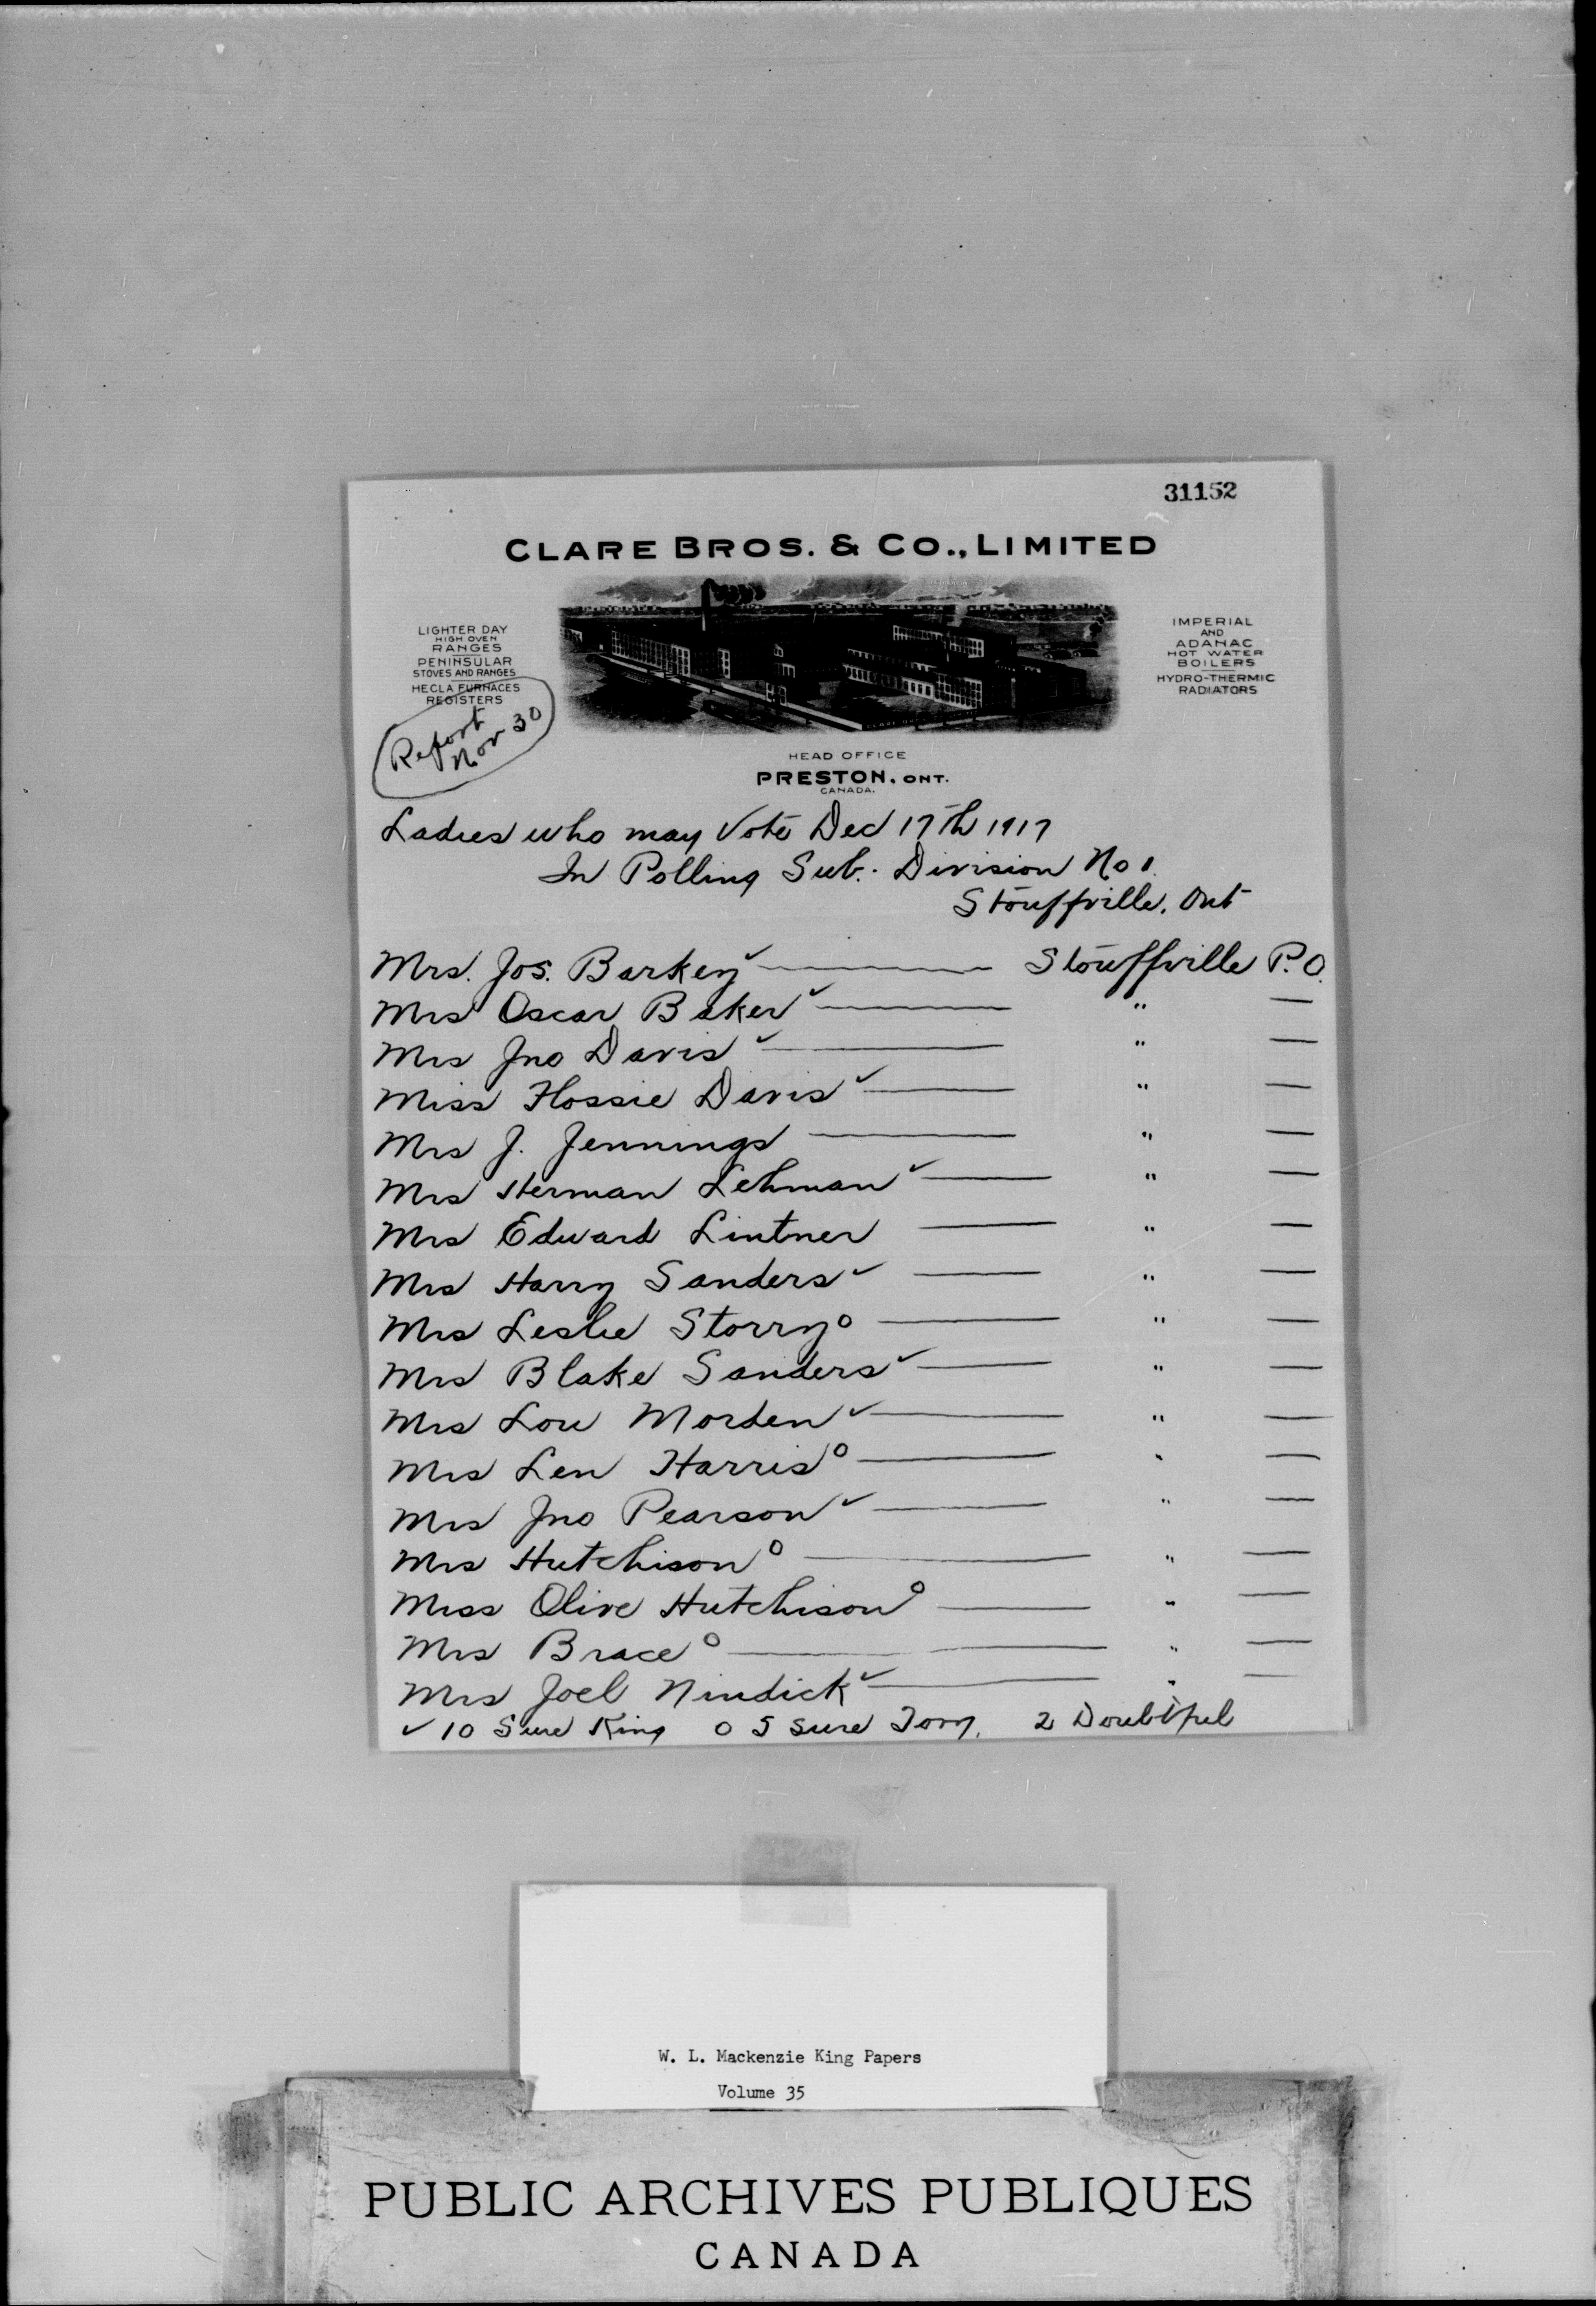 31152
CLARE BROS. & CO., LIMITED
LIGHTER DAY
HIGH OVEN
RANGES
PENINSULAR
STOVES AND RANGES
HECLA FURNACES
REGISTERS
IMPERIAL
AND
ADANAC
HOT WATER
BOILERS
HYDRO-THERMIC
RADIATORS
Report
Nov 30
HEAD OFFICE
PRESTON, ONT.
CANADA.
Ladies who may Vote Dec 17th 1917
In Polling Sub. Division No 1.
Stouffville. Ont
Mrs. Jos. Barkey ✓ — Stouffville P.O.
Mrs Oscar Baker ✓ — " —
Mrs Jno Davis ✓ — " —
Miss Flossie Davis ✓ — " —
Mrs J. Jennings — " —
Mrs Herman Lehman ✓ — " —
Mrs Edward Lintner — " —
Mrs Harry Sanders ✓ — " —
Mrs Leslie Storry o — " —
Mrs Blake Sanders ✓ — " —
Mrs Lou Morden ✓ — " —
Mrs Len Harris o — " —
Mrs Jno Pearson ✓ — " —
Mrs Hutchison o — " —
Miss Olive Hutchison o — " —
Mrs Brace o — " —
Mrs Joel Nindick ✓ — " —
✓ 10 Sure King o 5 sure Tory. 2 Doubtful
W. L. Mackenzie King Papers
Volume 35
PUBLIC ARCHIVES PUBLIQUES
CANADA